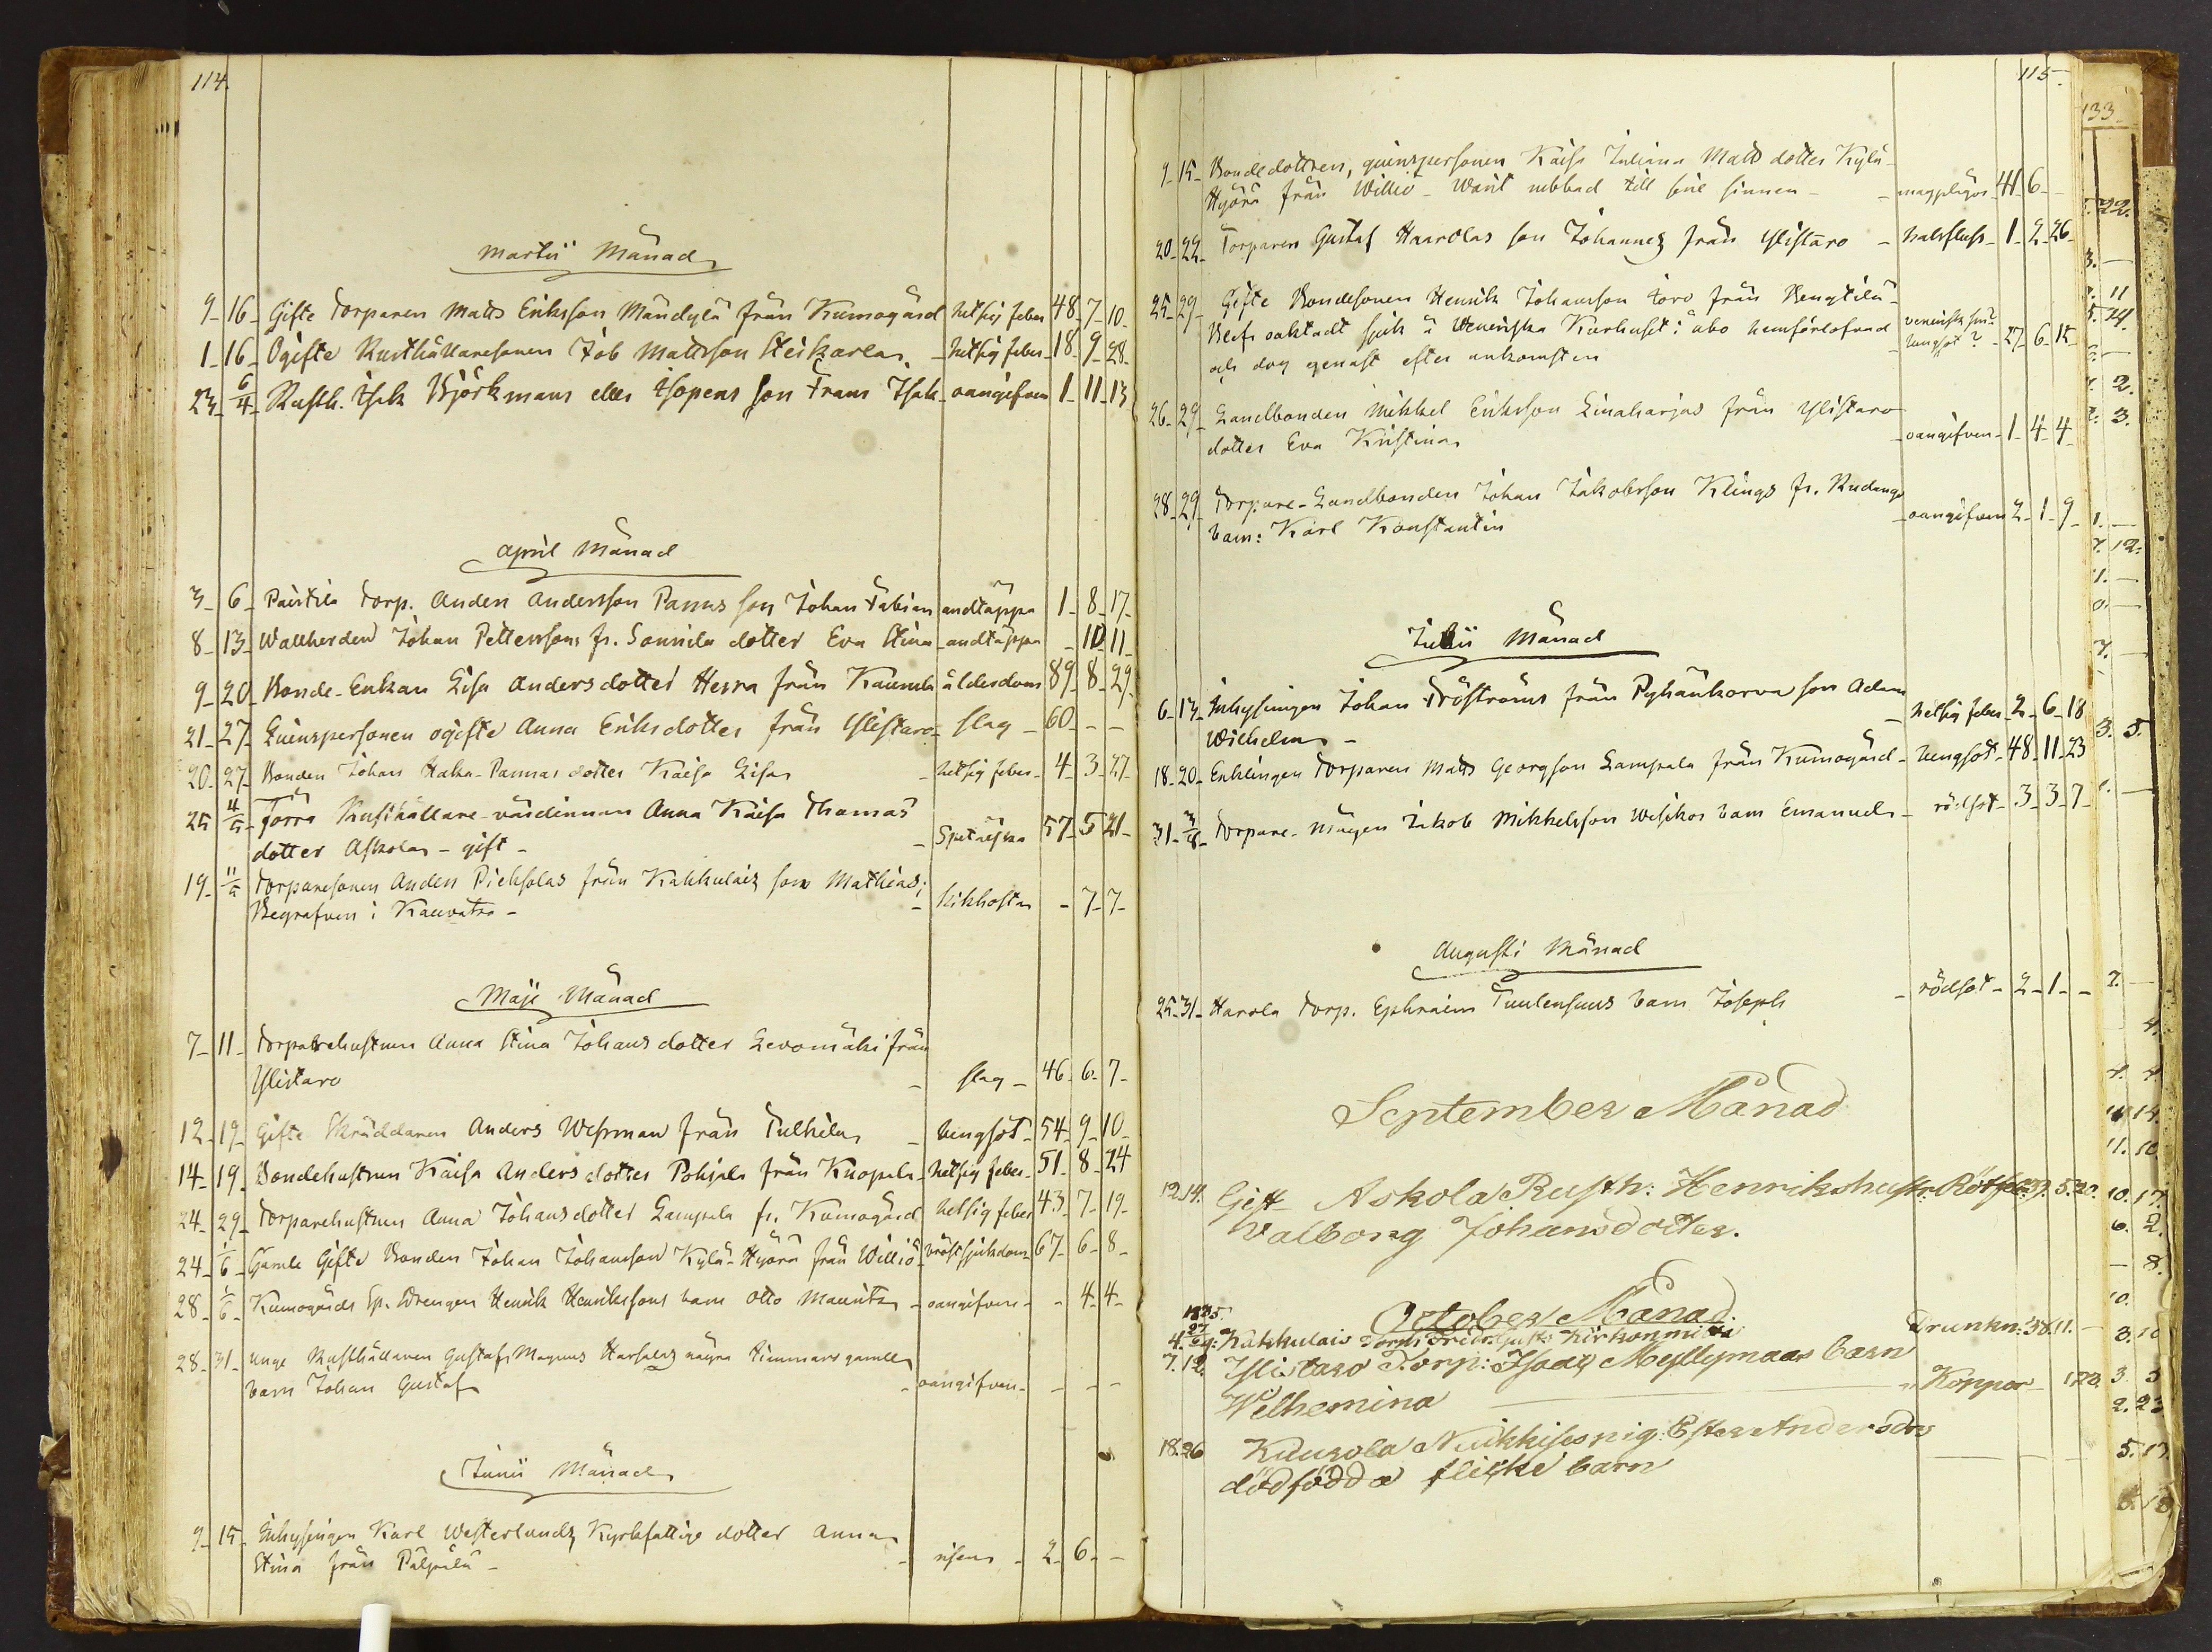 114.
Martii Månad
9 16 Gifte Torparen Matts Eriksson Mändylä från Kumogård hetsig feber 48 7 10
1 16 Ogifte Rusthållaresonen Job Mattsson Steikarla hetsig feber 18 9 28
23 6/4 Rusth. Isak Björkmans eller Isopens son Frans Isak oangifven 1 11 13
April Månad
3 6 Paistila Torp. Anders Andersson Panus son Johan Fabian andtäppa 1 8 17
8 13 Wallherden Johan Petterssons fr. Sonnila dotter Eva Stina andtäppa - 10 11
9 20 Bonde-Enkan Lisa Andersdotter Herra från Kaurula ålderdom 89 8 29
21 27 Quinspersonen ogifte Anna Eriksdotter från Ylistaro slag 60 - -
20 27 Bonden Johan Haka-Pannas dotter Kaisa Lisa hetsig feber 4 3 27
25 4/5 Förra Rusthållare-värdinnan Anna Kaisa Thomas
dotter Askola - gift - Spetälska 57 5 21
19 11/5 Torparesonen Anders Pieksolas från Kakkulais son Mathias;
Begrafven i Kauvatsa - Kikhosta - 7 7
Maji Månad
7 11 Torparehustrun Anna Stina Johansdotter Levomäki från
Ylistaro slag 46 6 7
12 19 Gifte Skräddaren Anders Wesman från Tulkila lungsot 54 9 10
14 19 Bondehustrun Kaisa Andersdotter Pohjala från Kuopila hetsig feber 51 8 24
24 29 Torparehustrun Anna Johansdotter Lampala fr. Kumogård hetsig feber 43 7 19
24 1/6 Gamle Gifte Bonden Johan Johansson Kylä-Hyörä från Williö bröstsjukdom 67 6 8
28 1/6 Kumogårds Sp. Drengen Henrik Henrikssons barn Otto Mauritz oangifven - 4 4
28 31 unge Rusthållaren Gustaf Magnus Harjales några timmars gamle
barn Johan Gustaf oangifven - - -
Junii Månad
9 15 Inhysingen Karl Westerlunds Kyrkfattige dotter Anna
Stina från Pälpälä - risen 2 6 -
115
9 15 Bondedottren, quinspersonen Kaisa Juliana Mattsdotter Kylä-
Hyörä från Williö - Warit rubbad till sine sinnen - magplågor 41 6 -
20 22 Torparen Gustaf Haarolas son Johannes från Ylistaro - halsfluss 1 2 26
25 29 Gifte Bondesonen Henrik Johansson Toro från Bengtilä
såsom sjuk å Weneriska Kurhuset i Åbo hemförlofvad
och dog genast efter ankomsten lungsot? 27 6 15
26 29 Landbonden Mikkel Eriksson Linaharjas från Ylistaro
dotter Eva Kristina oangifven 1 4 4
28 29 Torpare-Landbonden Johan Jakobsson Klings fr. Rudanga
barn: Karl Konstantin oangifven 2 1 9
Julii Månad
6 13 Inhysingen Johan Tröströms från Pyhänkorva son Adam
Wilhelm - hetsig feber 2 6 18
18 20 Enklingen Torparen Matts Georgsson Lampala från Kumogård lungsot 48 11 23
31 3/8 Torpare-Mågen Jakob Mikkelsson Wesikos barn Emanuel rödsot 3 3 7
Augusti Månad
25 31 Harola Torp. Ephraim Tuulensuus barn Joseph rödsot 2 1 -
September Månad
12. 14. Gift Askola Rusth: Henriks hustr. Rötf. 37. 5. 20.
Walborg Johansdotter.
October Månad.
1835.
4. 27 Kakkulais Torp: Fridr. Gust: Kirkonmi Drunkn: 38 11. -
7. 12. Ylistaro Torp: Isaac Myllymaas barn
Wilhemina Koppor
18. 26 Kuurola Nuikkis pig: Ester Andersdr
dödfödda flicke barn - - -
133